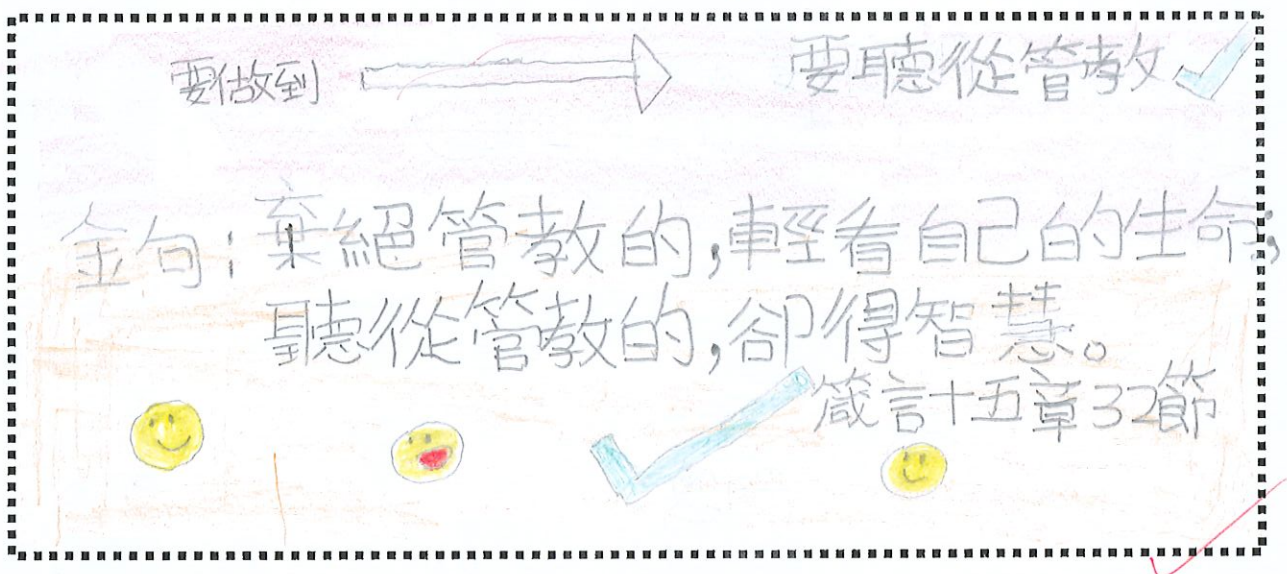 要做到 要聽從管教
金句:棄絕管教的,輕看自己的生命;
聽從管教的,卻得智慧。
箴言十五章32節